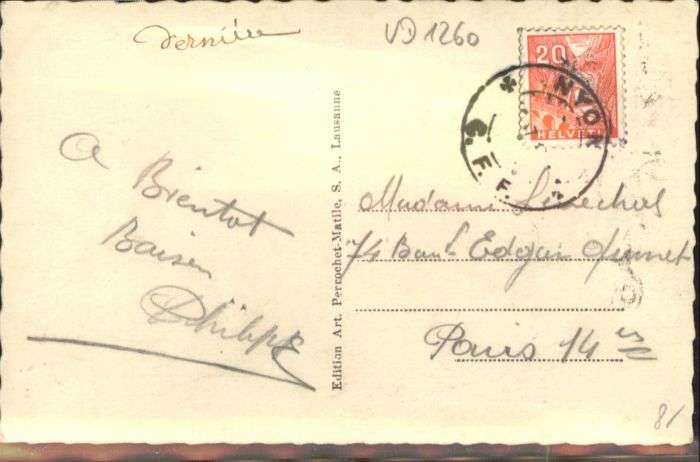 Dernière
VD 1260
20
HELVETI
NYON
C.F.F.
A Bientot
Baiser
Philippe
Edition Art. Perrochet-Matile, S. A., Lausanne
Madame
74 Boul Edgar Quinet
Paris 14 es
8/